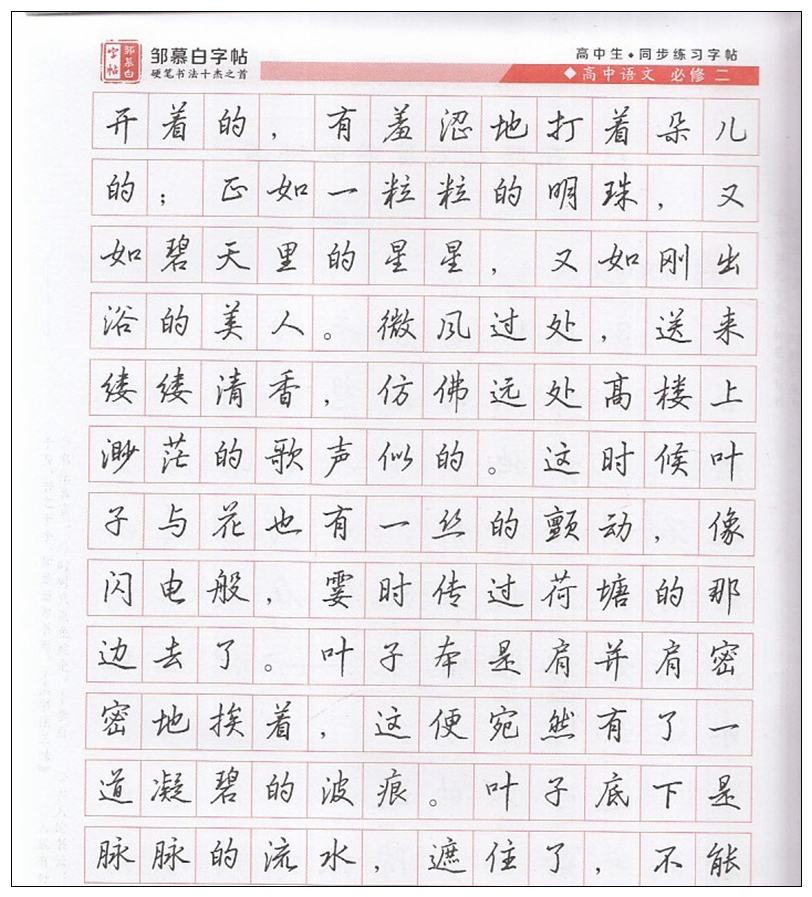 邹慕白字帖
邹慕白字帖
硬笔书法十杰之首
高中生·同步练习字帖
◆高中语文 必修 二
开着的，有羞涩地打着朵儿
的；正如一粒粒的明珠，又
如碧天里的星星，又如刚出
浴的美人。微风过处，送来
缕缕清香，仿佛远处高楼上
渺茫的歌声似的。这时候叶
子与花也有一丝的颤动，像
闪电般，霎时传过荷塘的那
边去了。叶子本是肩并肩密
密地挨着，这便宛然有了一
道凝碧的波痕。叶子底下是
脉脉的流水，遮住了，不能